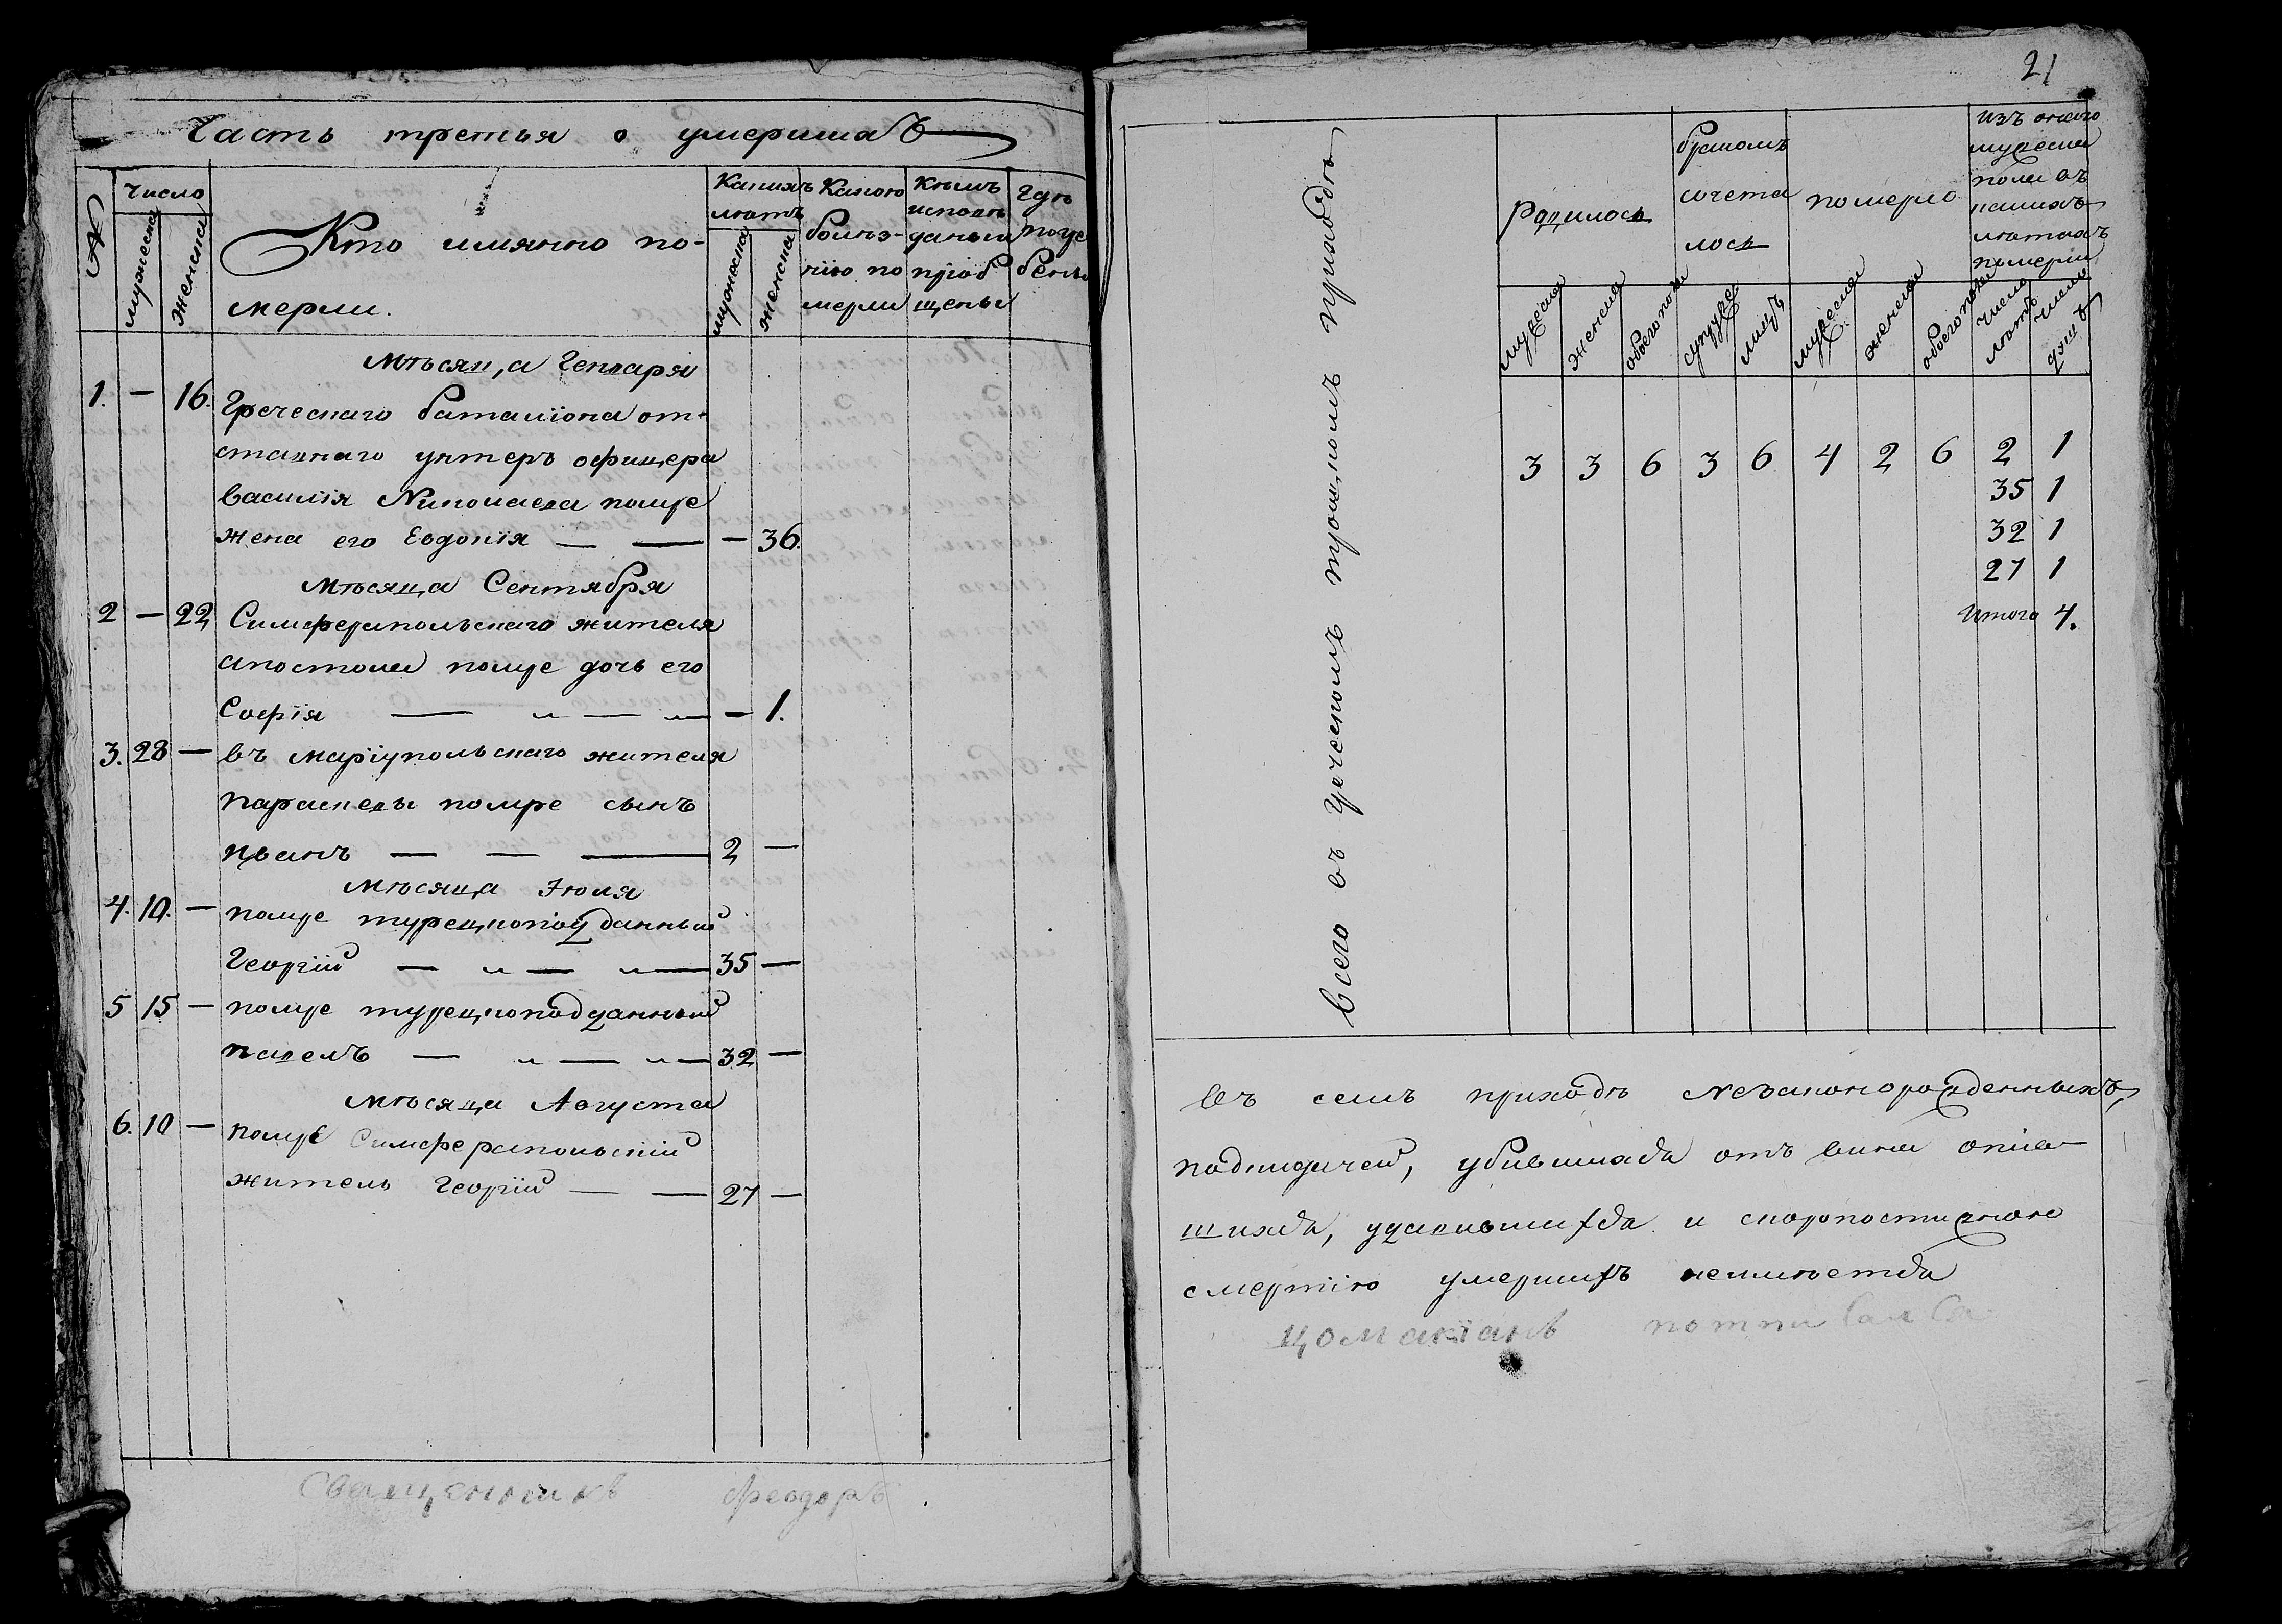 Часть третья о умершихъ
№
Число
мужеска
женска
Кто имянно по-
мерли.
Какихъ
лѣтъ
мужеска
женска
Какою
болѣз-
нію по
мерли
Кѣмъ
исповѣ
даны и
пріоб
щены
Гдѣ
погре
бены
Мѣсяца Генваря
1. — 16. Греческаго баталіона от-
ставнаго унтеръ офицера
Василія Николаева помре
жена его Евдокія — — — 36.
Мѣсяца Сентября
2 — 22 Симферопольскаго жителя
апостола помре дочь его
Софія — „ — „ — 1.
3. 28 — въ маріупольскаго жителя
параскевы помре сынъ
иванъ — — — 2 —
Мѣсяца Іюля
4. 10. — помре турецкоподданный
Георгій — „ — „ — 35 —
5 15 — помре турецкоподданный
павелъ — „ — „ — 32 —
Мѣсяца Августа
6. 10 — помре Симферопольскій
житель Георгій — — 27 —
священникъ феодоръ
21
Всего въ греческомъ троицкомъ приходѣ
родилось
бракомъ
сочета
лось
померло
изъ онаго
мужеска
пола въ
какихъ
лѣтахъ
померли
мужеска
женска
обоего пола
супруже
лицъ
мужеска
женска
обоего пола
число
лѣтъ
число
душъ
3 3 6 3 6 4 2 6 2 1
35 1
32 1
27 1
Итого 4.
Въ семъ приходѣ незаконорожденныхъ,
подкидачей, убившихся отъ вина опив
шихся, удавившихся и скоропостижною
смертію умершихъ неимѣется